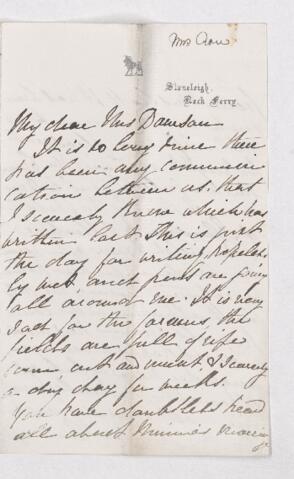 Stoneleigh,
Rock Ferry.
My dear Mrs Dawson
It is so long since there
has been any communi
cation between us. that
I scarcely know which has
written last This is just
the day for writing, hopeless
ly wet and pens are going
all around me. It is very
sad for the farmers, the
fields are full of ripe
corn, cut and uncut, & scarcely
a dry day for weeks.
You have doubtless heard
all about